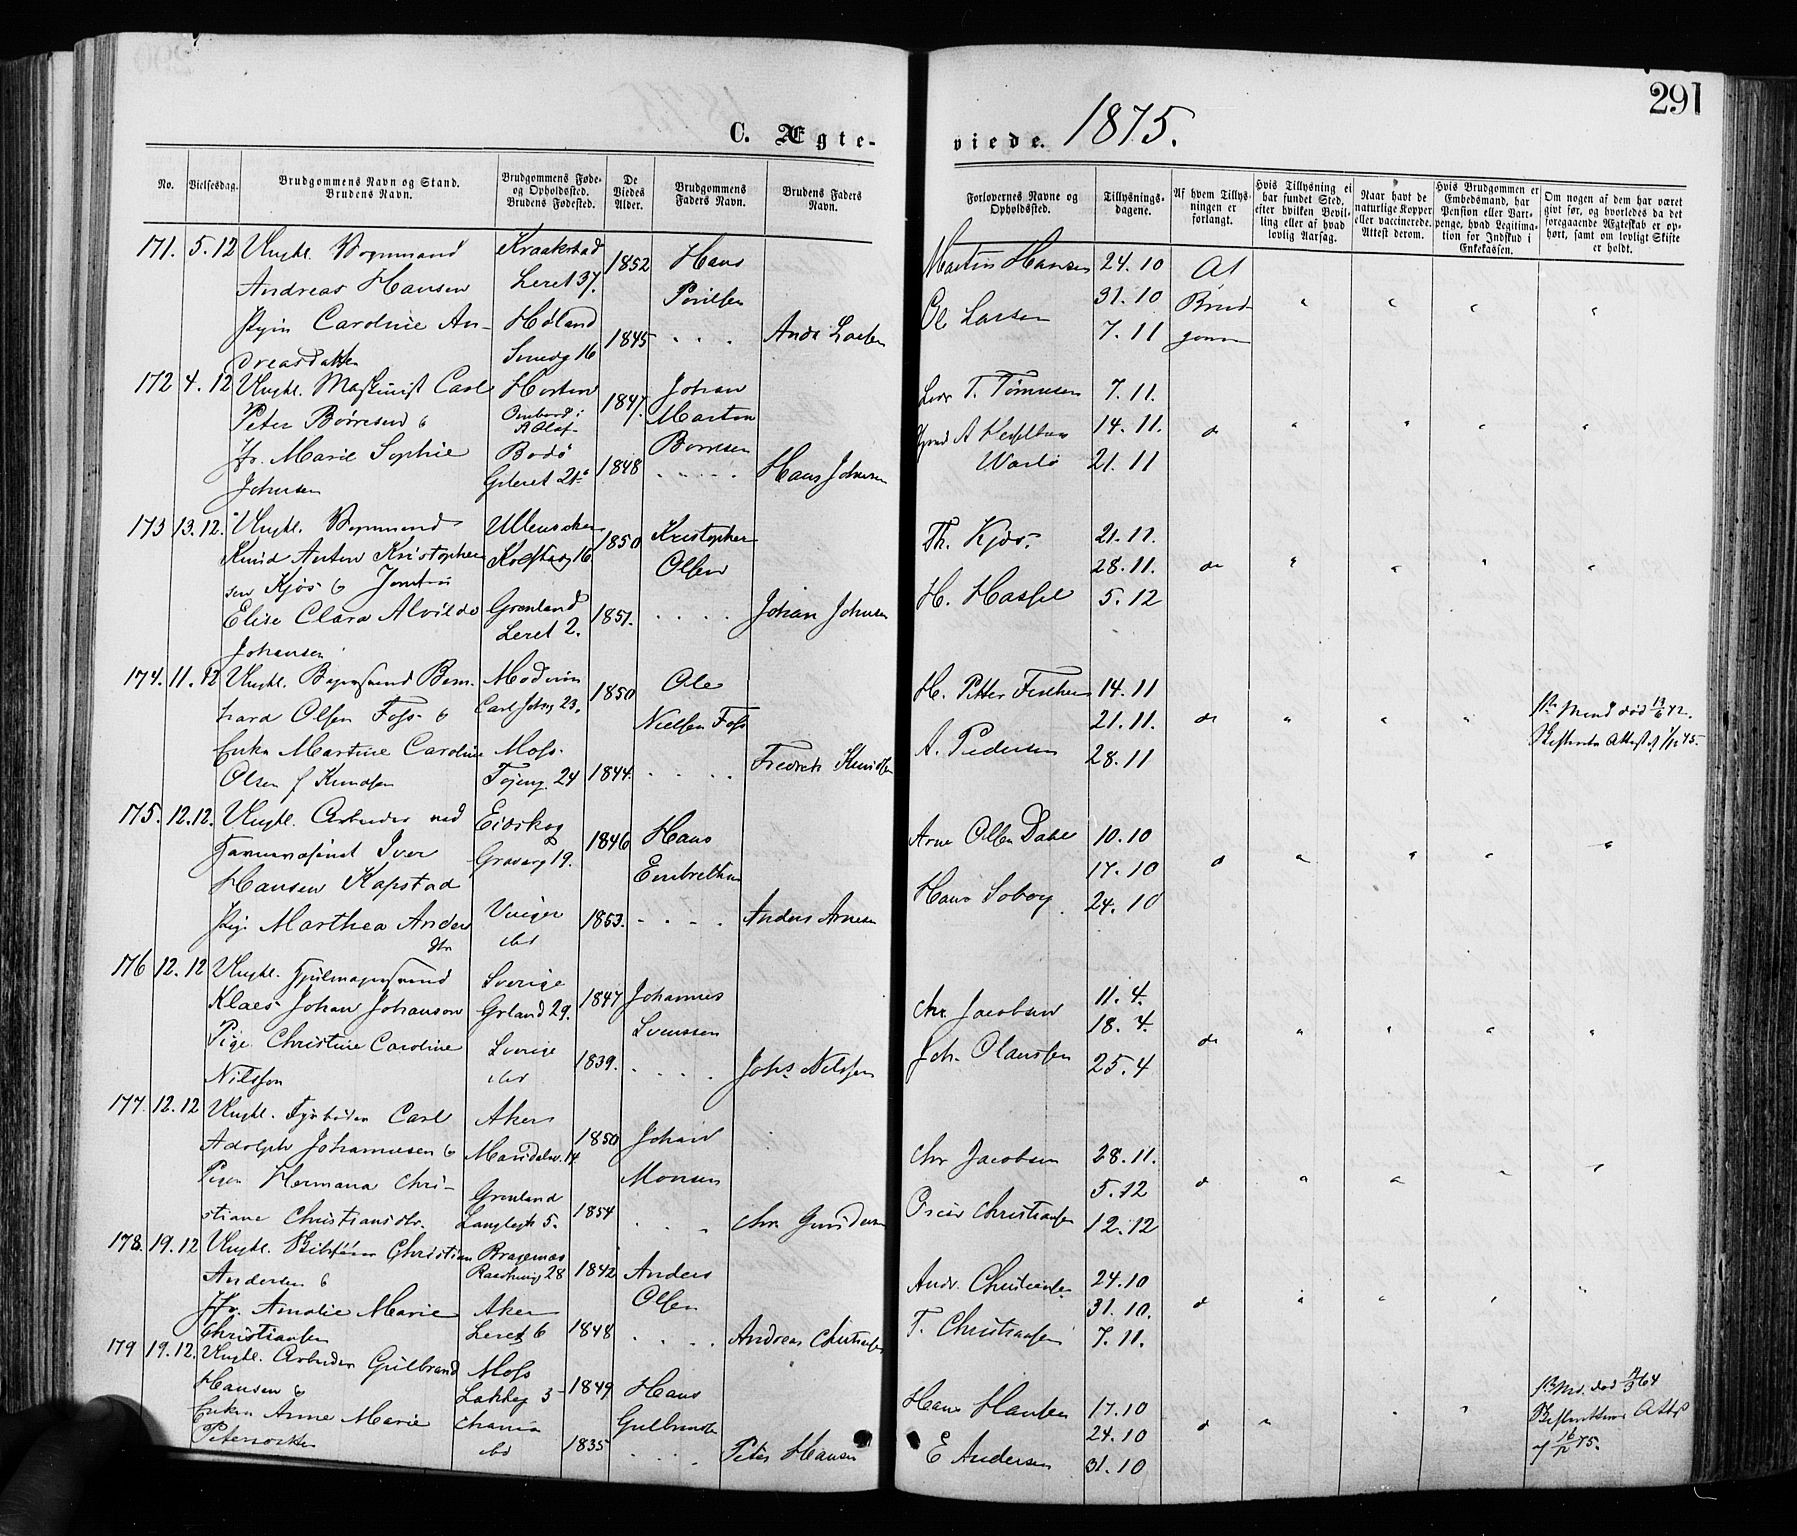 291
C. Ægte-
viede. 1875.
No.
Vielsesdag.
Brudgommens Navn og Stand.
Brudens Navn.
Brudgommens Føde-
og Opholdssted.
Brudens Fødested.
De
Viedes
Alder.
Brudgommens
Faders Navn.
Brudens Faders
Navn.
Forlovernes Navne og
Opholdssted.
Tillysnings-
dagene.
Af hvem Tillys-
ningen er
forlangt.
Hvis Tillysning ei
har fundet Sted,
efter hvilken Bevil-
ling eller af hvad
lovlig Aarsag.
Naar havt de
naturlige Kopper
eller vaccinerede.
Attest derom.
Hvis Brudgommen er
Embedsmand, har
Pension eller Vart-
penge, hvad Legitima-
tion for Indskud i
Enkekassen.
Om nogen af dem har været
gift før, og hvorledes da det
foregaaende Ægteskab er op-
hørt, samt om lovligt Skifte
er holdt.
171. 5.12 Ungkl.
Andreas Hansen
Kraakstad
Leret 37.
1852
Hans
Poulsen
Martin Hansen
24.10
Af
Brud
gommen
Pigen Caroline An-
dreasdatter
Høland
Smedg 16
1845
Anders Larsen
Ol Larsen
31.10
7.11
172 4.12 Ungkl. Maskinist Carl
Peter Børresen &
Horten
Ombord i
K Olaf
1847.
Johan
Martin
Børresen
T. Tønnesen
7.11.
14.11.
do
Jfr. Marie Sophie
Johnsen
Bodø
Grteret 21a
1848
Hans Johnsen
21.11
173 13.12. Ungkl.
Knud Anton Kristopher
sen Kjøs & Jomfru
Ullensaker
16
1850
Kristopher
Olsen
Th. Kjøs.
21.11.
28.11.
do
Elise Clara Alvilde
Johansen
Grønland
Leret 2.
1851.
Johan Johnsen
H. Hassel
5.12
174. 11.12 Ungkl. Bern-
hard Olsen Foss &
Modum
Carl Johsg 23.
1850
Ole
Nielsen Foss
H. Petter
14.11
21.11.
do
Enken Martine Caroline
Olsen f Knudsen
Moss.
Tøjeng. 24
1844.
Fredrik Knudsen
A. Pedersen
28.11
175. 12.12. Ungkl. Arbeider ved
Iver
Hansen Kapstad
Eidskog
19.
1846
Hans
Embretsen
Arne Olsen Dahl
10.10
17.10
do
Pige. Marthea Anders
dtr
Vinger
ibd
1853.
Anders Arnesen
Hans
24.10
176 12.12 Ungkl. Hjulmagersvend
Klaes Johan Johanson
Sverige
Grland 29.
1847
Johannes
Svenssen
Chr. Jacobsen
11.4.
18.4.
do
Pige Christine Caroline
Nilsson
Sverige
ibd
1839.
Johs Nilssen
Joh. Olaussen
25.4
177. 12.12 Ungkl. Fyrbøder Carl
Adolph Johannesen &
Aker
Maridalsv. 14
1850
Johan
Monsen
Chr Jacobsen
28.11.
5.12
do
Pigen Hermana Chri-
stiane Christiansdtr.
Grønland
Langlegt 5.
1854
Chr Gundersen
Oscar Christiansen
12.12
178. 19.12 Ungkl. Christian
Andersen &
Bragernæs
28
1842
Anders
Olsen
Andr. Christiansen
24.10
31.10.
do
Jfr. Amalie Marie
Christiansen
Aker
Leret 6
1848
Andreas Christiansen
T. Christiansen
7.11.
179 19.12. Ungkl. Arbeider Gulbrand
Hansen &
Moss
Lakkeg 3
1849
Hans
Gulbrandsen
Hans Hansen
17.10
24.10
do
Enken Anne Marie
Petersdatter
Chania
ibd
1835
Peter Hansen
E Andersen
31.10